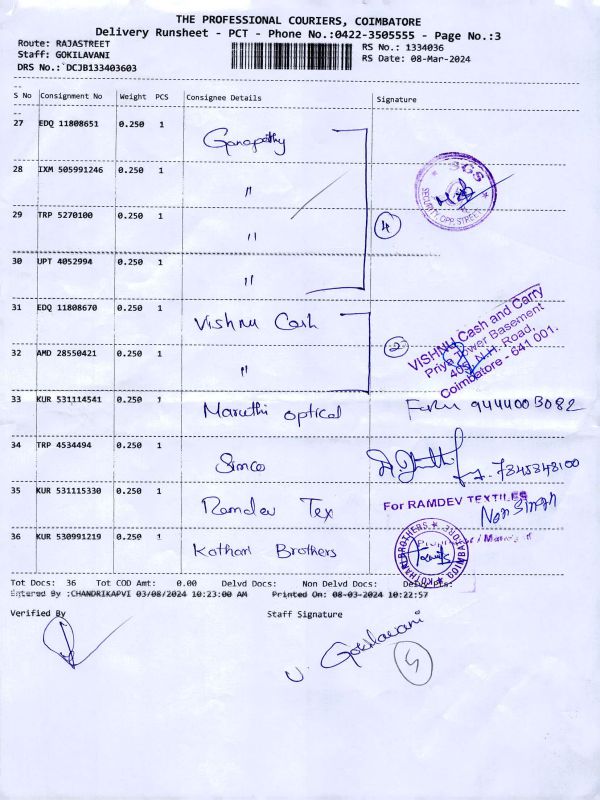 THE PROFESSIONAL COURIERS, COIMBATORE
Delivery Runsheet - PCT - Phone No.:0422-3505555 - Page No.:3
Route: RAJASTREET
RS No.: 1334036
Staff: GOKILAVANI
RS Date: 08-Mar-2024
DRS No.: DCJB133403603
S No Consignment No Weight PCS Consignee Details Signature
27 EDQ 11808651 0.250 1 Ganapathy
28 IXM 505991246 0.250 1 "
SGS
SECURITY, OPP STREET
29 TRP 5270100 0.250 1 "
4
30 UPT 4052994 0.250 1 "
31 EDQ 11808670 0.250 1 Vishnu Cash
2
VISHNU Cash and Carry
Priya Tower Basement
405, N.H. Road,
Coimbatore - 641 001.
32 AMD 28550421 0.250 1 "
33 KUR 531114541 0.250 1 Maruthi optical 9444003082
34 TRP 4534494 0.250 1 Simco 7345348100
35 KUR 531115330 0.250 1 Ramdev Tex
For RAMDEV TEXTILES
Nar Singh
36 KUR 530991219 1 Kothari Brothers
KOTHARI BROTHERS
Tot Docs: 36 Tot COD Amt: 0.00 Delvd Docs: Non Delvd Docs:
Entered By :CHANDRIKAPVI 03/08/2024 10:23:00 AM Printed On: 08-03-2024 10:22:57
Verified By Staff Signature
V. Gokilavani
5